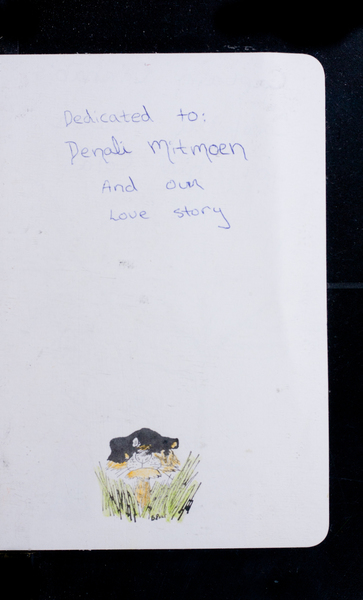 Dedicated to:
Denali Mitmoen
And our
Love story